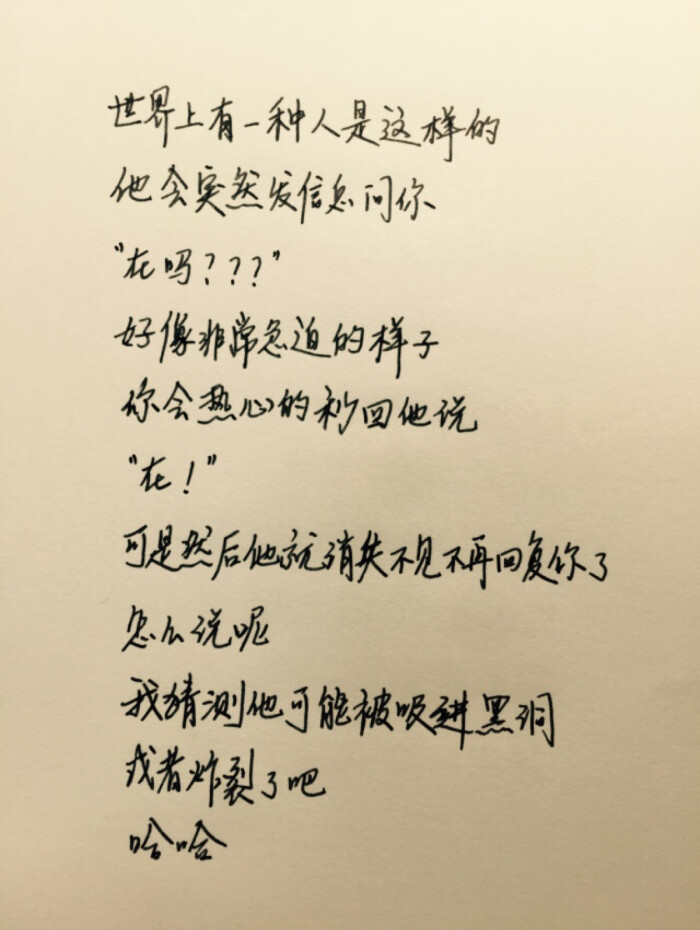 世界上有一种人是这样的
他会突然发信息问你
"在吗？？？"
好像非常急迫的样子
你会热心的秒回他说
"在！"
可是然后他就消失不见不再回复你了
怎么说呢
我猜测他可能被吸进黑洞
或者炸裂了吧
哈哈